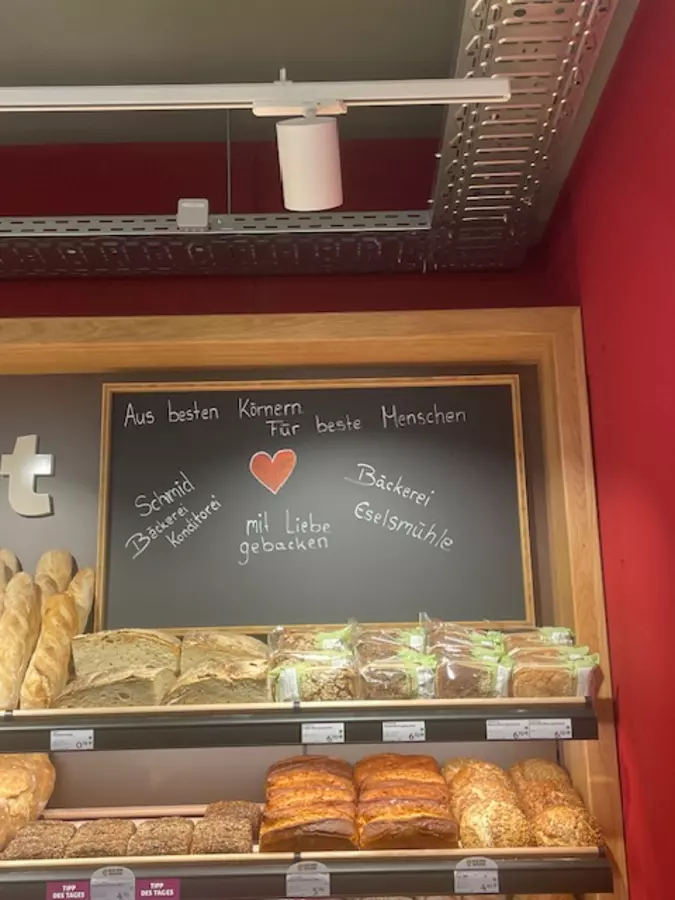 Aus besten Körnern
Für beste Menschen
t
Schmid
Bäckerei
Konditorei
mit Liebe
gebacken
Bäckerei
Eselsmühle
TIPP
DES TAGES
TIPP
DES TAGES